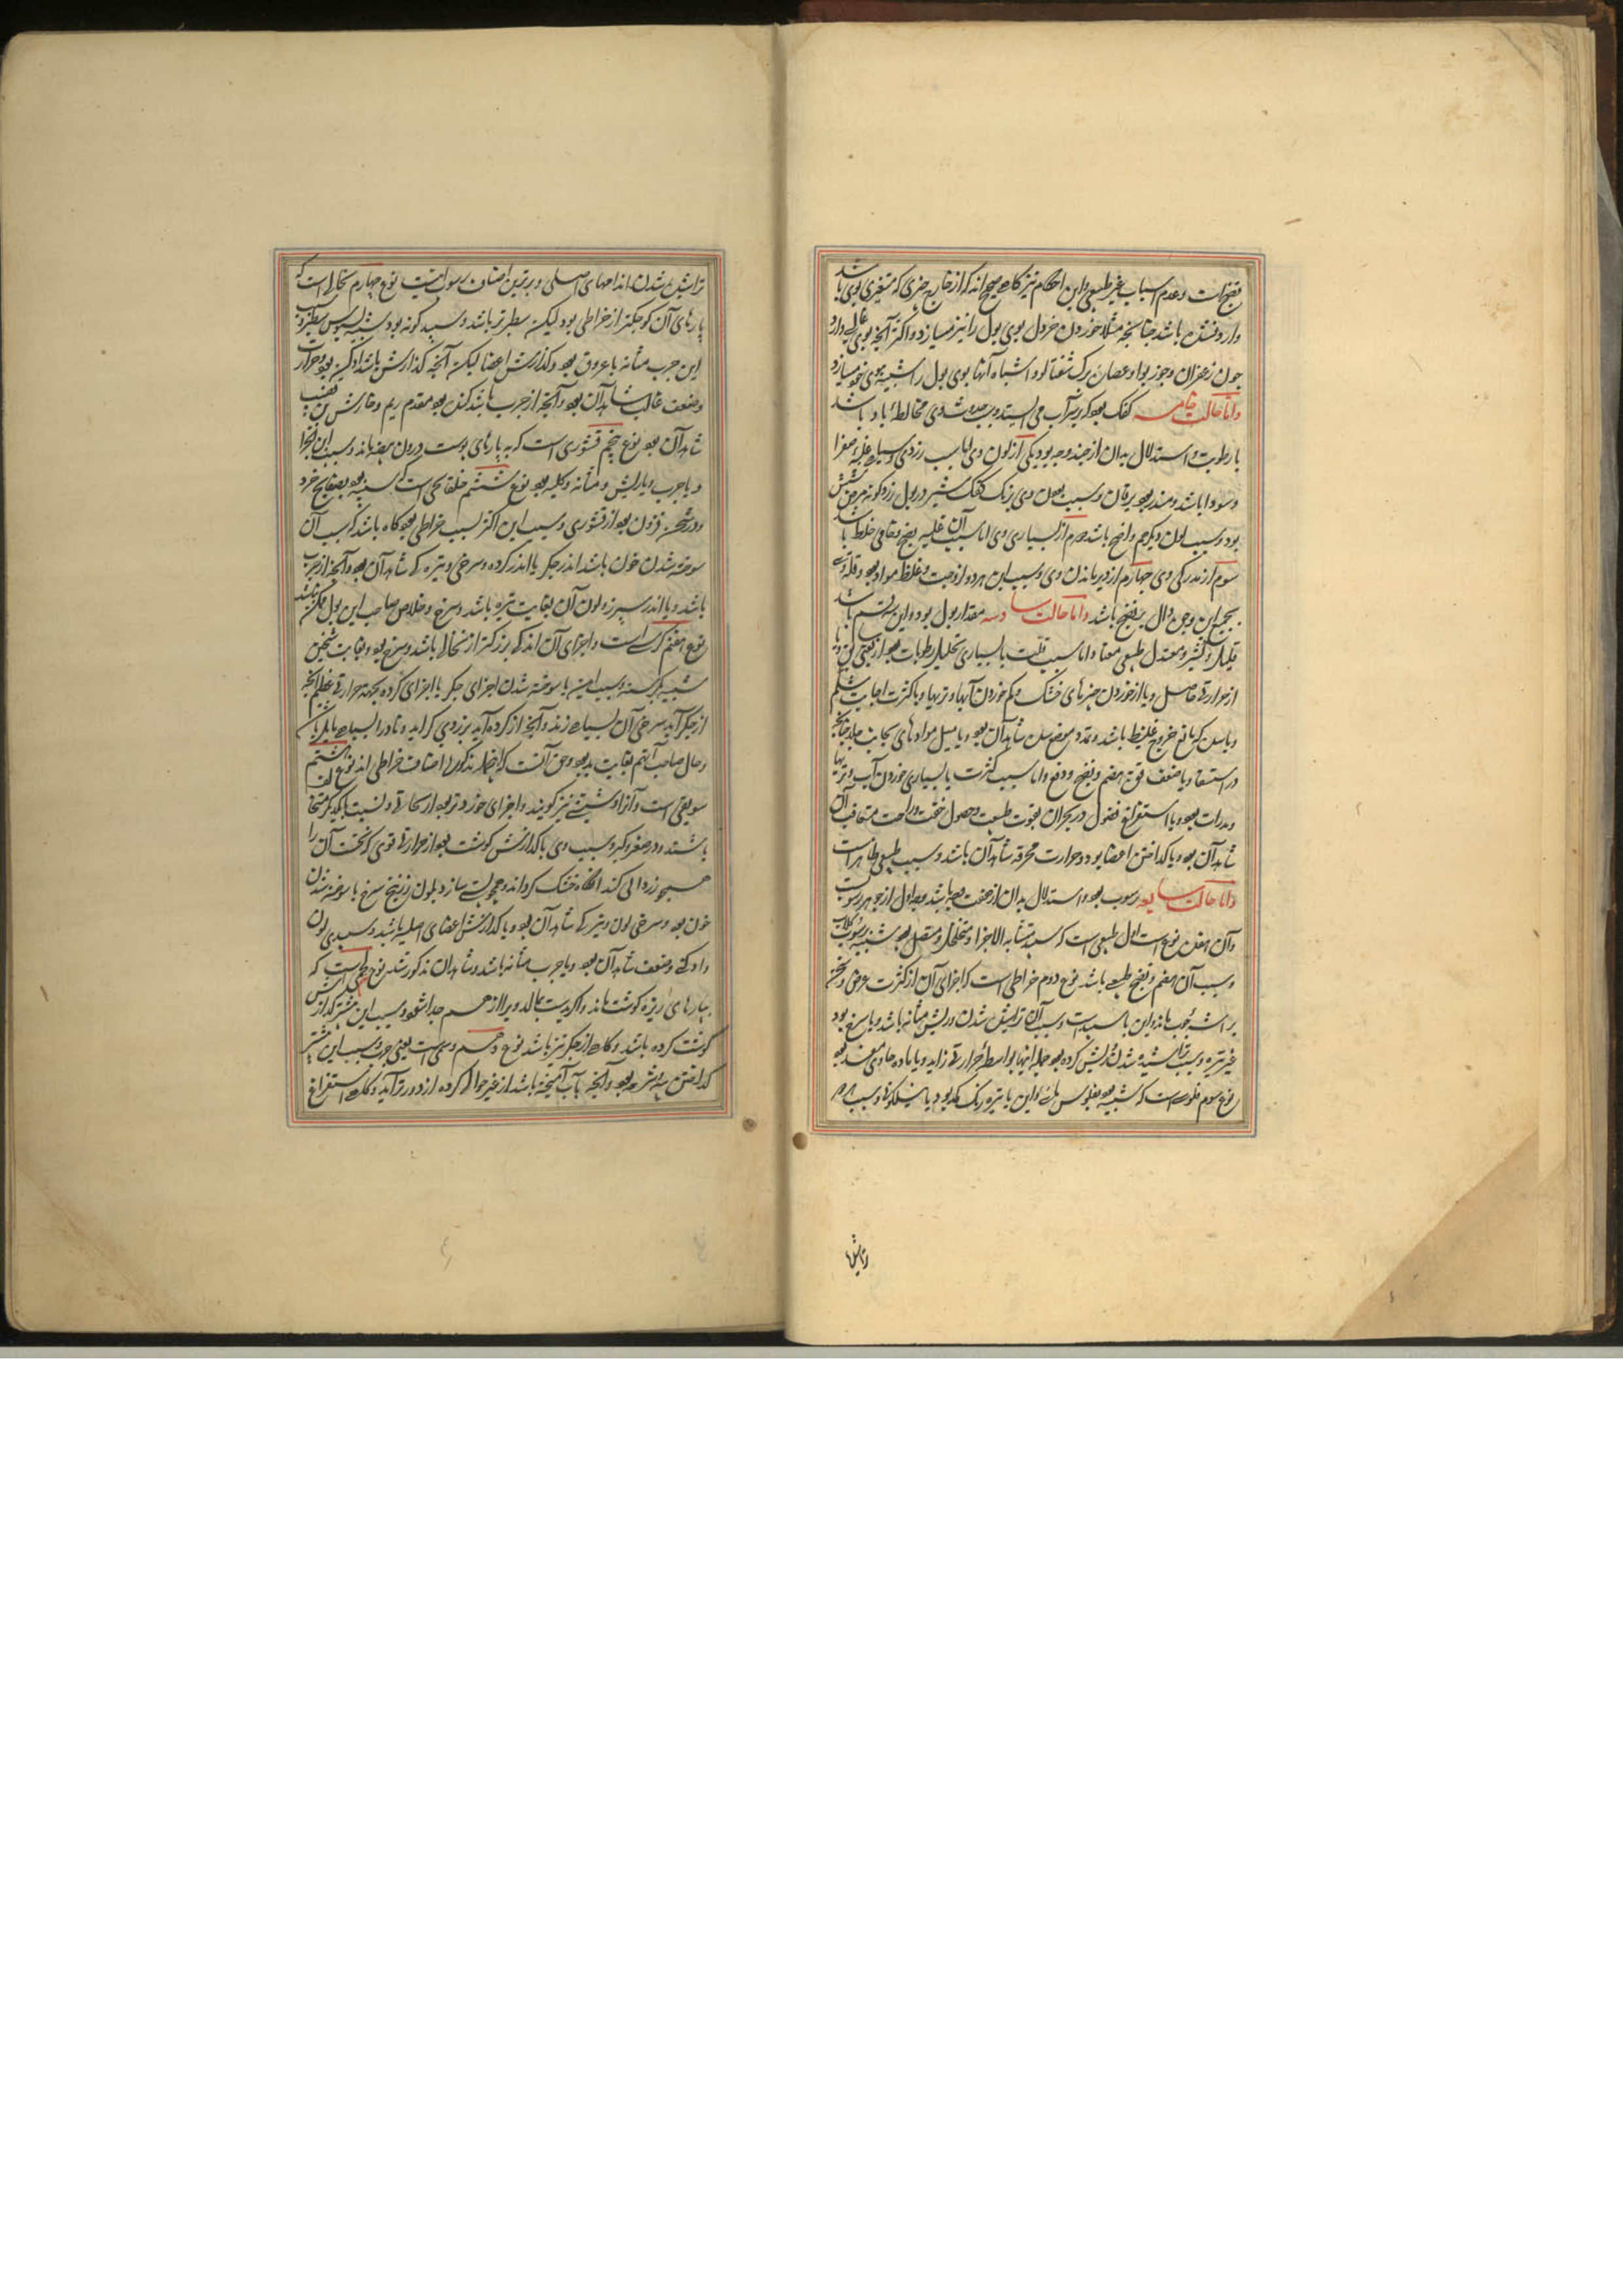 نضج ذات و عدم اسباب غیر طبیعی و این احکام نیز گاه صحیح اند که از خارج چیزی که متغیری بوی باشد
وارد نشده باشد چنانچه مثلا خوردن خردل بوی بول را نیز میسازد و اکثر آنچه بوی غالب دارد
چون زعفران و جوز بوا و عصارهٔ برک شفتالو و اشباه آنها بوی بول را شبیه ببوی خود میسازد
و اما حالت خامسه کفک بود که بر سر آب می ایستد و سبب حدوث وی مخالطهٔ باد باشد
با رطوبت و استدلال بدان از چند وجه بود یکی از لون وی اما سبب زردی و سیاهی غلبهٔ صفرا
و سودا باشد و منذر بود بیرقان و سبب بودن وی برنک کفک شیر در بول زردگونه مرض شش
بود و سبب لون دیگر هم واضح باشد دوم از بسیاری وی اما سبب آن غلبه نضج و خامی خلط باشد
سوم از بزرکی وی چهارم از دیر ماندن وی و سبب این هر دو لزوجت و غلظ مواد بود و قلت
بجمیع این وجوه دال بر نضج باشد و اما حالت سادسه مقدار بول بود و این بر سه قسم باشد
قلیل و کثیر و معتدل طبیعی معتاد اما سبب قلت یا بسیاری تحلیل رطوبات بود از تعبی
از حرارتی حاصل و یا از خوردن چیزهای خشک و کم خوردن آبها و تریها و یا کثرت اجابت شکم
و یا سده که مانع خروج غلیظ باشد و تمدد موضع سده شاهد آن بود و یا میل مواد های بجانب جلد چنانچه
در استسقا و یا ضعف قوت هضم و نضج و دفع و اما سبب کثرت یا بسیاری خوردن آب و تریها
و مدرات بود و یا استفراغ فضول در بحران بقوت طبیعت و حصول خفت و راحت متعاقب آن
شاهد آن بود و یا کداختن اعضا بود و حرارت محرقه شاهد آن باشد و سبب طبیعی ظاهر است
و اما حالت سابعه رسوب بود و استدلال بدان از هفت وجه باشد وجه اول از جوهر رسوب
و آن هفده نوع است اول طبیعی است که سپید متشابه الاجزا و متخلخل و متصل بود شبیه برسوب کلاب
و سبب آن هضم و نضج طبیعی باشد نوع دوم خراطی است که اجزای آن از کثرت عرض و ثخن
براشهٔ چوب ماند و این یا سپید است و سبب آن تراشیده شدن و ریش مثانه باشد و یا سرخ بود
غیر تیره و سبب تراشیده شدن و ریش کرده بود جمله اینها بواسطهٔ حرارتی زاید و یا ماده حادی مفسد بود
نوع سوم فلوسی است که شبیه بود بفلوس ماهی و این یا تیره رنک کمد بود یا نیلکونه و سبب
تراشیده شدن اندامهای اصلی و بدترین اصناف رسوب اینست نوع چهارم نخالی است که
پارهای آن کوچکتر از خراطی بود و لیکن سطبرتر باشد و سپید کونه بود شبیه بسبوس سطبر و سبب
این جرب مثانه یا عروق بود و کدازش اعضا لیکن آنچه کدازش باشد ادکن بود و حرارت
و ضعف غالب شاهد آن بود و آنچه از جرب باشد کنده بود مقدم ریم و خارش بن قضیب
شاهد آن بود نوع پنجم قشوری است که به پارهای پوست درون بیضه ماند و سبب این انجرا
و یا جرب و یا ریش و مثانه و کلیه بود نوع ششم صفایحی است که شبیه بود بصفایح خرد
و در ثخن فزون بود از قشوری و سبب این اکثر سبب خراطی بود و گاه باشد که سبب آن
سوخته شدن خون باشد اندر جکر یا اندر کرده و سرخی و تیره کی شاهد آن بود و آنچه از جرب
باشد و یا اندر سپرز و لون آن بغایت تیره باشد و سرخ و خلاص صاحب این بول ممکن نباشد
نوع هفتم کرسنی است و اجزای آن اندکی بزرکتر از نخالی باشد و سرخ بود و بغایت ثخین
شبیه بکرسنه و سبب این یا سوخته شدن اجزای جکر یا اجزای کرده بجهت حرارتی عظیم آنچه
از جکر آید سرخی آن بسیاهی زند و آنچه از کرده آید بزردی کراید و نادرا بسیاهی مایل بود
و حال صاحب آن هم بغایت بد بود و حق آنست که این چهار مذکور از اصناف خراطی اند نوع هشتم
سویقی است و آنرا دشیشی نیز کویند و اجزای خرد تر بود از نخالی و نسبت بیکدیکر مختلف
باشند در صغر و کبر و سبب وی یا کدازش کوشت بود از حرارتی قوی که نخست آن را
همچو زردابی کند آنکاه خشک کرداند و همچو پست سازد بلون زرنیخ سرخ یا سوخته شدن
خون بود و سرخی لون و تیره کی شاهد آن بود و یا کدازش اعضای اصلیه باشد و سپیدی لون
و ادکنی و ضعف شاهد آن بود و یا جرب مثانه باشد و شاهدان مذکور شد نوع نهم لحمی است که
بپارهای ریزه کوشت ماند و اگر بدست بمالند ویرا از هم جدا نشود و سبب این بیشتر کدازش
کوشت کرده باشد و کاهی از جکر نیز باشد نوع دهم دسمی است یعنی چرب و سبب این بیشتر
کداختن پیه و شحم بود و آنچه بآب آمیخته باشد از غیر حوالی کرده از دور تر آید و کاهی استفراغ